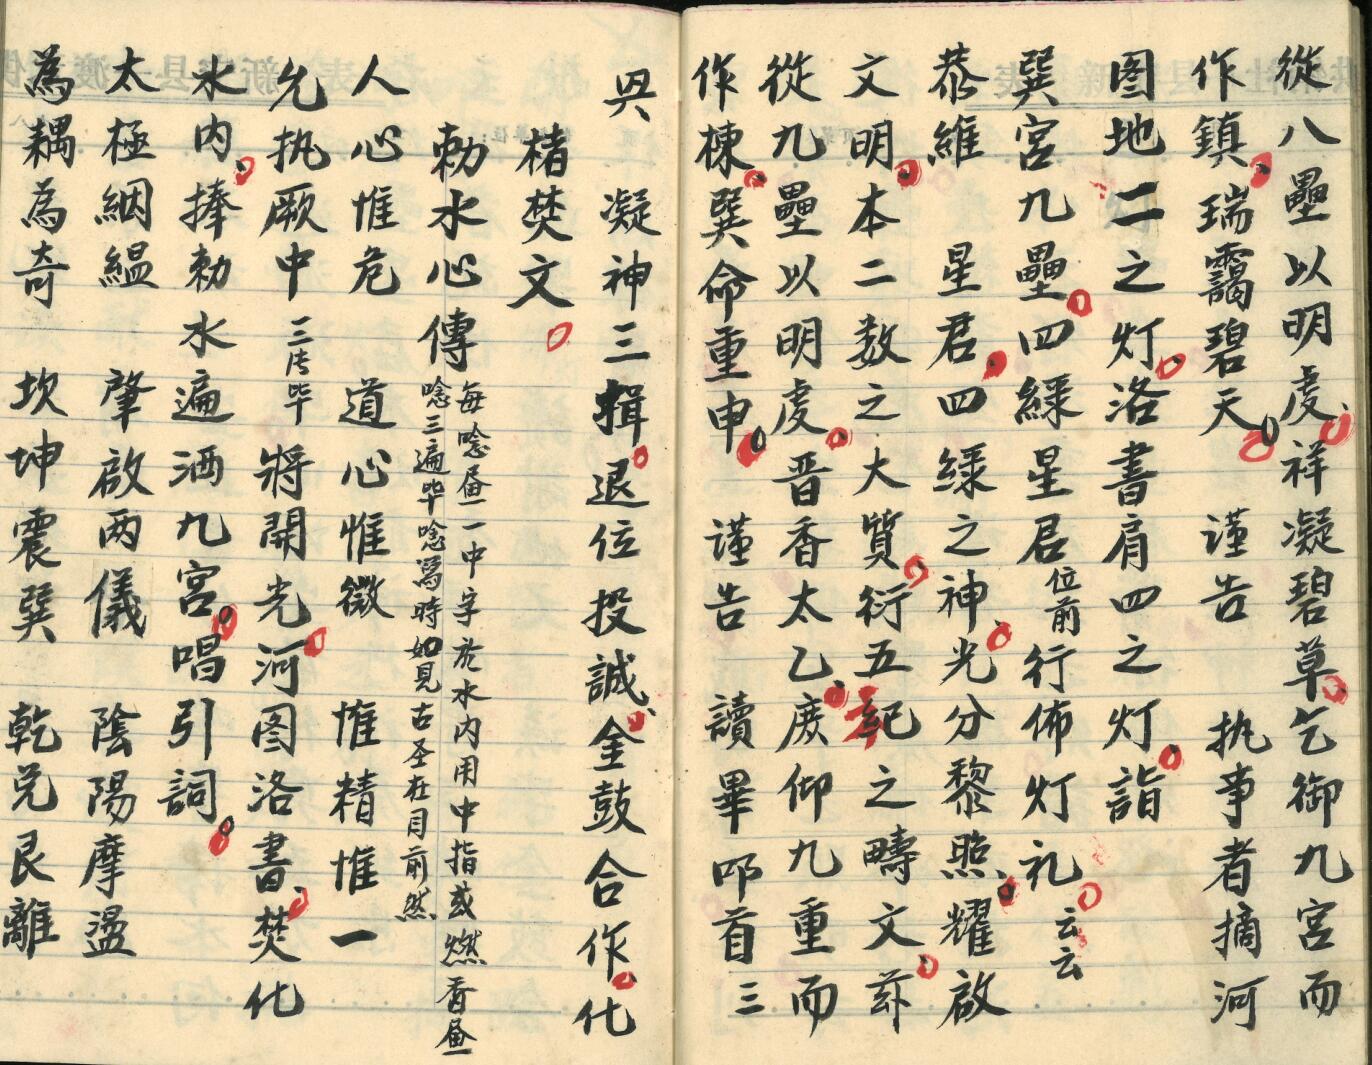 從八壘以明虔祥凝碧草乞御九宮而
作鎮瑞靄碧天 谨告 执事者摘河
图地二之灯洛書肩四之灯詣
巽宮九壘四綠星君位前行佈灯礼云云
恭維 星君四綠之神光分黎照耀啟
文明本二数之大質衍五紀之疇文
從九壘以明虔晋香太乙 仰九重而
作棟巽命重申 谨告 讀畢叩首三
 凝神三揖退位投誠金鼓合作化
楮焚文
勅水心傳
每唸 一中字於水内用中指或燃香
唸三遍毕唸 時如見古圣在目前然
人心惟危 道心惟微 惟精惟一
允执厥中三法毕將開光河图洛書焚化
水内捧勅水遍洒九宮唱引詞
太極絪緼 肇啟两儀 陰陽摩盪
為耦為奇 坎坤震巽 乾兌艮離